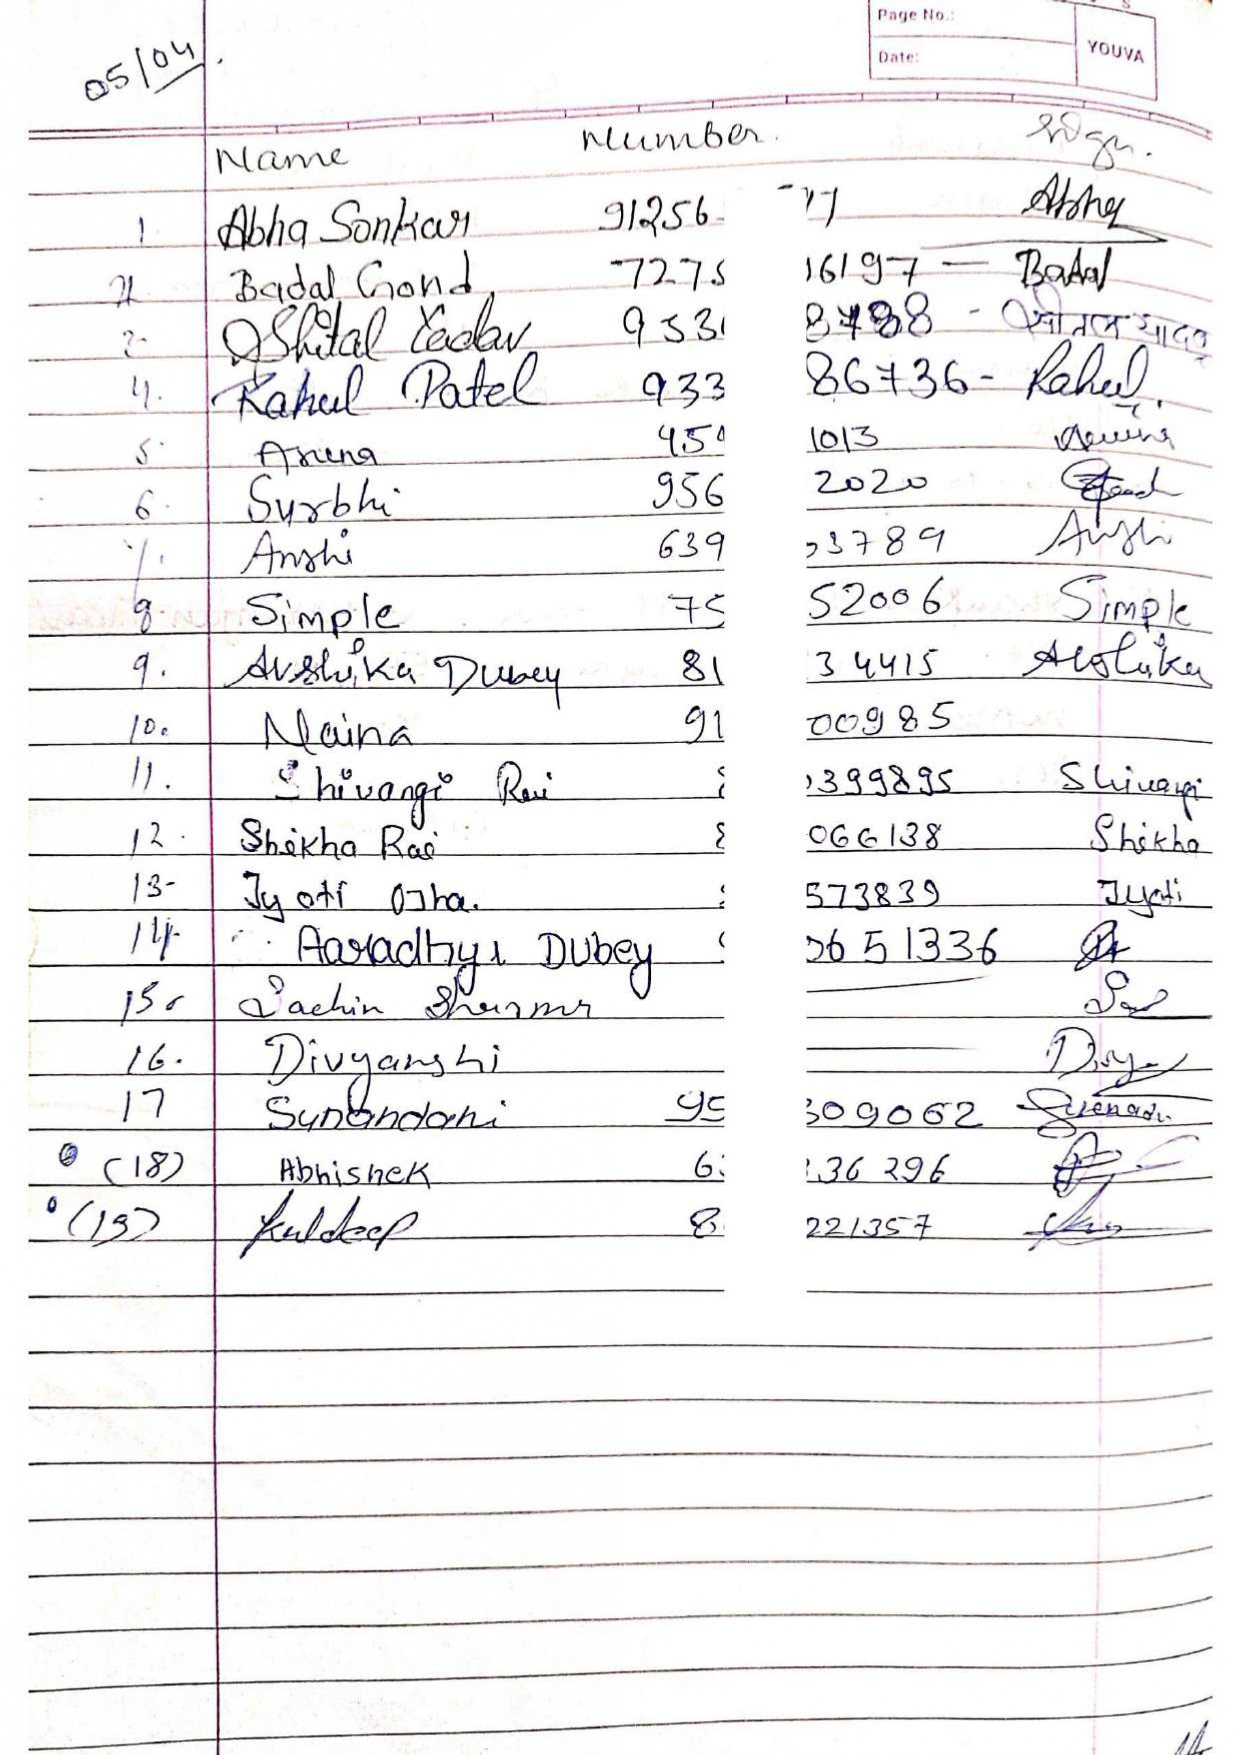 Page No.:
Date:
YOUVA
05/04
Name Number. Sign.
1 Abha Sonkar 91256 77 Abha
2 Badal Gond 7275 16197 — Badal
3 Shital Yadav 933 8788 - शीतल यादव
4. Rahul Patel 933 86736 - Rahul.
5. Aruna 450 1013 Aruna
6. Surbhi 956 2020
7. Anshi 639 3789 Anshi
8 Simple 75 52006 Simple
9. Anshika Dubey 81 34415 Anshika
10. Naina 91 00985
11. Shivangi Rai 399895 Shivangi
12. Shikha Rai 8 066138 Shikha
13- Jyoti Ojha. 573839 Jyoti
14. Aaradhya Dubey 0651336
15. Sachin Sharma
16. Divyanshi Divya
17 Sunandani 95 309062
(18) Abhishek 6 36296
(19) Kuldeep 8 221357